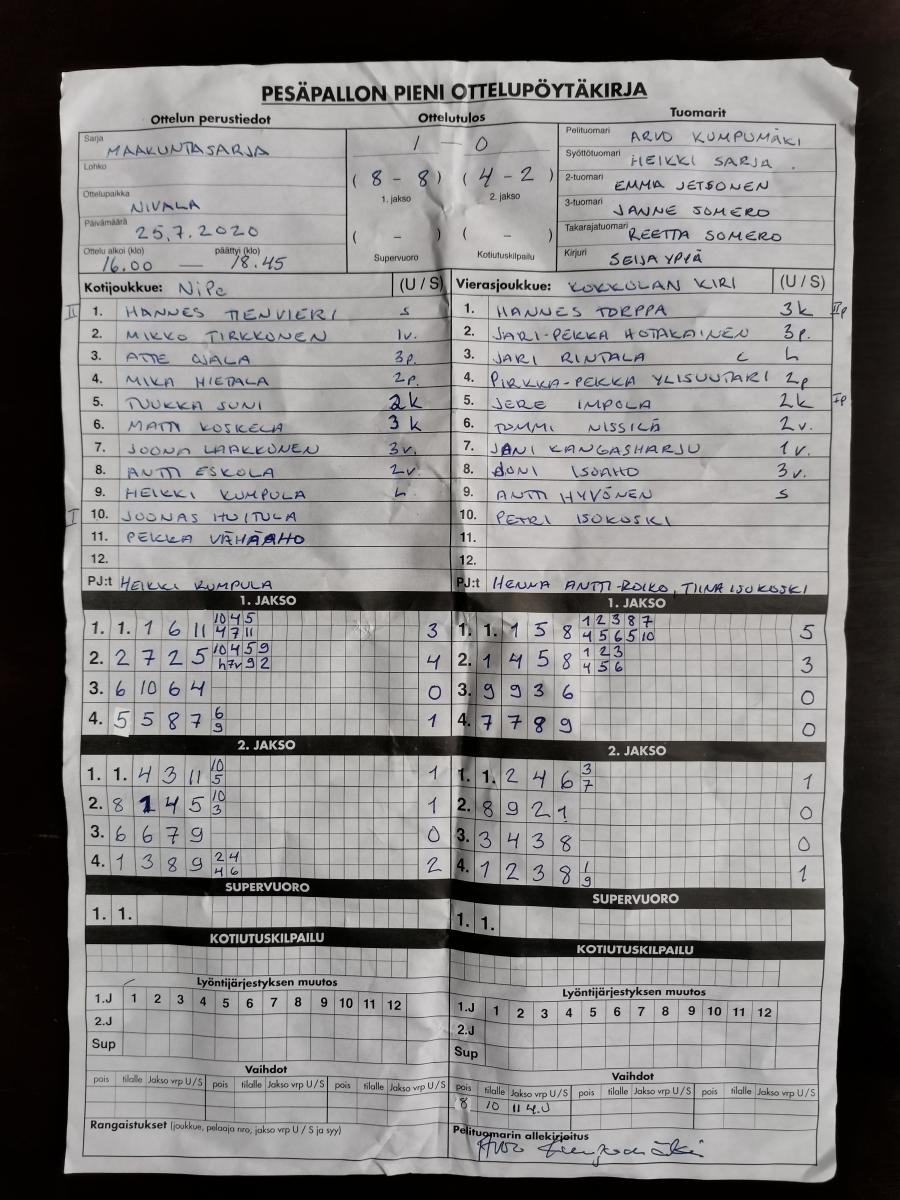 PESÄPALLON PIENI OTTELUPÖYTÄKIRJA
Ottelun perustiedot
Sarja
MAAKUNTASARJA
Lohko
Ottelupaikka
NIVALA
Päivämäärä
25.7.2020
Ottelu alkoi (klo) päättyi (klo)
16.00 — 18.45
Ottelutulos
1 — 0
(8 - 8) (4 - 2)
1. jakso 2. jakso
( - ) ( - )
Supervuoro Kotiutuskilpailu
Tuomarit
Pelituomari ARVO KUMPUMÄKI
Syöttötuomari HEIKKI SARJA
2-tuomari EMMA JETSONEN
3-tuomari JANNE SOMERO
Takarajatuomari REETTA SOMERO
Kirjuri SEIJA YPYÄ
Kotijoukkue: NiPe (U / S)
II 1. HANNES TIENVIERI S
2. MIKKO TIRKKONEN 1v.
3. ATTE OJALA 3p.
4. MIKA HIETALA 2p.
5. TUUKKA SUNI 2k
6. MATTI KOSKELA 3k
7. JOONA LAAKKONEN 3v.
8. ANTTI ESKOLA 2v.
9. HEIKKI KUMPULA L
I 10. JOONAS HUITULA
11. PEKKA VÄHÄAHO
12.
PJ:t HEIKKI KUMPULA
Vierasjoukkue: KOKKOLAN KIRI (U / S)
1. HANNES TORPPA 3k IIp
2. JARI-PEKKA HOTAKAINEN 3p.
3. JARI RINTALA C L
4. PIRKKA-PEKKA YLISUUTARI 2p
5. JERE IMPOLA 2k Ip
6. TOMMI NISSILÄ 2v.
7. JANI KANGASHARJU 1v.
8. JONI ISOAHO 3v.
9. ANTTI HYVÖNEN S
10. PETRI ISOKOSKI
11.
12.
PJ:t HENNA ANTTI-ROIKO, TIINA ISOKOSKI
1. JAKSO
1. 1. 1 6 11 10 4 5 3
4 7 11
2. 2 7 2 5 10 4 5 9 4
h 7v 9 2
3. 6 10 6 4 0
4. 5 5 8 7 6 1
9
2. JAKSO
1. 1. 4 3 11 10 1
5
2. 8 1 4 5 10 1
3
3. 6 6 7 9 0
4. 1 3 8 9 2 4 2
4 6
SUPERVUORO
1. 1.
KOTIUTUSKILPAILU
Lyöntijärjestyksen muutos
1.J 1 2 3 4 5 6 7 8 9 10 11 12
2.J
Sup
Vaihdot
pois tilalle Jakso vrp U / S pois tilalle Jakso vrp U / S pois tilalle Jakso vrp U / S
Rangaistukset (joukkue, pelaaja nro, jakso vrp U / S ja syy)
1. JAKSO
1. 1. 1 5 8 1 2 3 8 7 5
4 5 6 5 10
2. 1 4 5 8 1 2 3 3
4 5 6
3. 9 9 3 6 0
4. 7 7 8 9 0
2. JAKSO
1. 1. 2 4 6 3 1
7
2. 8 9 2 1 0
3. 3 4 3 8 0
4. 1 2 3 8 1 1
9
SUPERVUORO
1. 1.
KOTIUTUSKILPAILU
Lyöntijärjestyksen muutos
1.J 1 2 3 4 5 6 7 8 9 10 11 12
2.J
Sup
Vaihdot
pois tilalle Jakso vrp U / S pois tilalle Jakso vrp U / S pois tilalle Jakso vrp U / S
8 10 II 4.U
Pelituomarin allekirjoitus
Arvo Kumpumäki